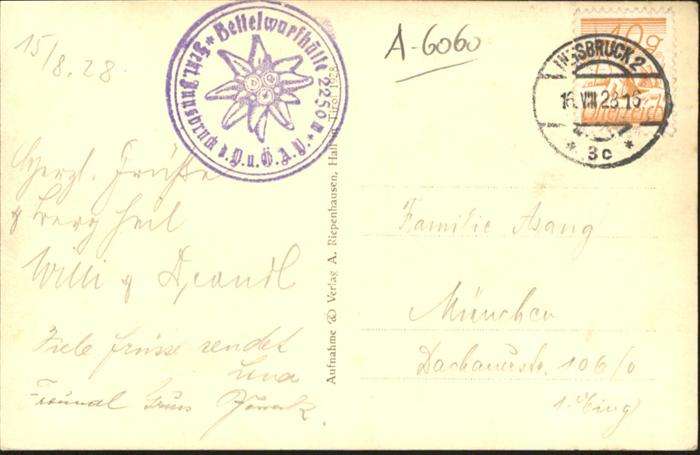 15/8.28.
Bettelwurfhütte 2250 m
Sekt. Innsbruck d. D. u. Ö. A. V.
A-6060
10g
Österreich
INNSBRUCK 2
16.VIII 28.16
* 3c *
Herzl. Grüße
& Berg Heil
Willi &
Viele Grüsse sendet
und
Freundl. Gruss
Aufnahme & Verlag A. Riepenhausen, Hall in Tirol 1928
Familie Asang
München
Dachauerstr. 106/0
1. Eing